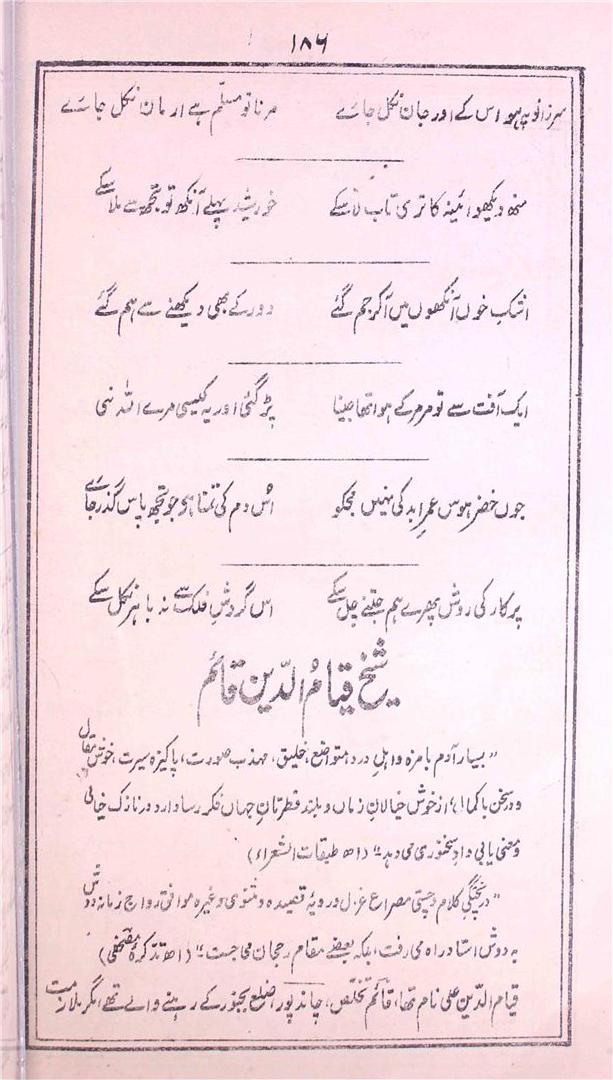 ۱۸۶
سرزانو پہ ہو اس کے اور جان نکل جائے مرنا تو مسلّم ہے ارمان نکل جائے
منھ دیکھو آئینہ کا تری تاب لا سکے خورشید پہلے آنکھ تو تجھ سے ملا سکے
اشک خوں آنکھوں میں آ کر جم گئے دور کے بھی دیکھنے سے ہم گئے
ایک آفت سے تو مرمر کے ہوا تھا جینا پڑ گئی اور یہ کیسی مرے اللہ نئی
جوں خضر ہوس عمر ابد کی نہیں مجکو اس دم کی تمنا ہو جو تجھ پاس گذر جائے
پرکار کی روش پھرے ہم جتنے چل سکے اس گردشِ فلک سے نہ باہر نکل سکے
شیخ قیام الدّین قائم
"بسیار آدم بامزہ و اہلِ درد، متواضع، خلیق، مہذب صورت، پاکیزہ سیرت، خوش مقال
و در سخن باکمال، از خوش خیالانِ زماں و بلند فطرتانِ جہاں فکر رسا دارد و در نازک خیالی
و معنی یابی دادِ سخنوری می دہد" (اھ طبقات الشعراء)
"در پختگی کلام و چستی مصراع غزل و رویۂ قصیدہ و مثنوی وغیرہ موافق رواج زمانہ دوش
بہ دوش استاد راہ می رفت، بلکہ بعضے مقام رجحان می جست" (اھ تذکرہ مصحفی)
قیام الدّین علی نام تھا، قائم تخلّص، چاندپور (ضلع بجنور کے رہنے والے تھے، مگر ملازمت